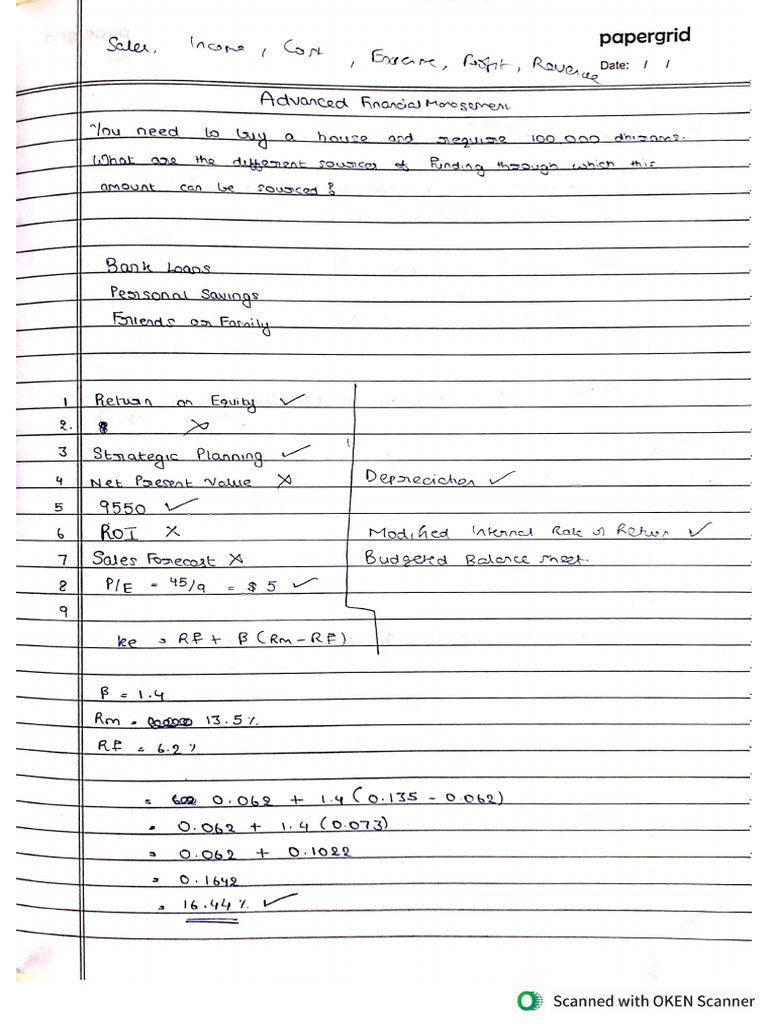 papergrid
Sales, Income, Cost, Expense, Profit, Revenue
Date: / /
Advanced Financial Management
You need to buy a house and require 100,000 dhirams.
What are the different sources of funding through which this
amount can be sourced?
Bank Loans
Personal Savings
Friends or Family
1 Return on Equity ✓
2. ✗
3 Strategic Planning ✓
4 Net Present Value ✗ Depreciation ✓
5 9550 ✓
6 ROI ✗ Modified Internal Rate of Return ✓
7 Sales Forecast ✗ Budgeted Balance sheet.
8 P/E = 45/9 = $ 5 ✓
9
ke = RF + β (Rm - RF)
β = 1.4
Rm = 13.5%
RF = 6.2%
= 0.062 + 1.4 (0.135 - 0.062)
= 0.062 + 1.4 (0.073)
= 0.062 + 0.1022
= 0.1642
= 16.44% ✓
Scanned with OKEN Scanner